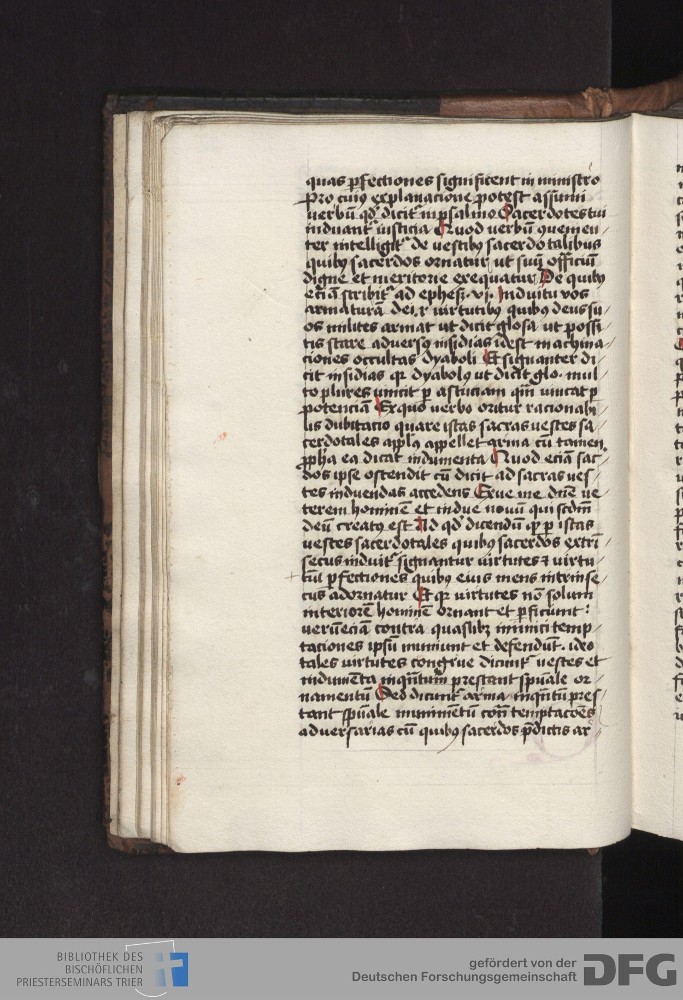 quas ꝑfectiones significent in ministro
Pro cuiꝯ explanacione potest assumi
verbū qd̛ dicit᷑ in psalmo Sacerdotes tui
induant᷑ iusticia Quod verbū ꝯuenien
ter intelligit᷑ de vestibꝯ sacerdotalibus
quibꝯ sacerdos ornatur ut suū officiū
digne et meritorie exequatur De quibꝯ
eciā scribit᷑ ad ephes̄ .vj. Induitu vos
armaturā dei .i. virtutibꝯ quibꝯ deus su
os milites armat ut dicit glosa ut possi
tis stare adversꝯ insidias idest machina
ciones occultas dyaboli Et signanter di
cit insidias qꝛ dyabolꝯ ut dicit glo. mul
to plures vincit ꝑ astuciam qm̄ vincat ꝑ
potenciā Ex quo verbo oritur racionabi
lis dubitacio quare istas sacras vestes sa
cerdotales appłꝯ appellet arma cū tamen
ꝓpħa ea dicat indumenta Quod eciā sac̛
dos ipse ostendit cū dicit ad sacras ves
tes induendas accedens Exue me dn̄e ve
terem hominē et indue novū qui scd̄m
deū creatꝯ est Ad qd̛ dicendū qꝫ ꝑ istas
vestes sacerdotales quibꝯ sacerdos extrī
secus induit᷑ signantur virtutes ⁊ virtu
tū ꝑfectiones quibꝯ eius mens intrinse
cus adornatur Et qꝛ virtutes nō solum
interiorē hominē ornant et ꝑficiunt :
verū eciā contra quaslibꝫ inimici temp
taciones ipsū muniunt et defendūt. ideo
tales virtutes congrue dicunt᷑ vestes et
indumēta inqn̄tum prestant sp̄uale or
namentū Sed dicunt᷑ arma inqn̄tū pres
tant sp̄uale munimentū cont̛ temptacōes
adversarias cū quibꝯ sacerdos p̄dictis ar
BIBLIOTHEK DES
BISCHÖFLICHEN
PRIESTERSEMINARS TRIER
gefördert von der
Deutschen Forschungsgemeinschaft
DFG